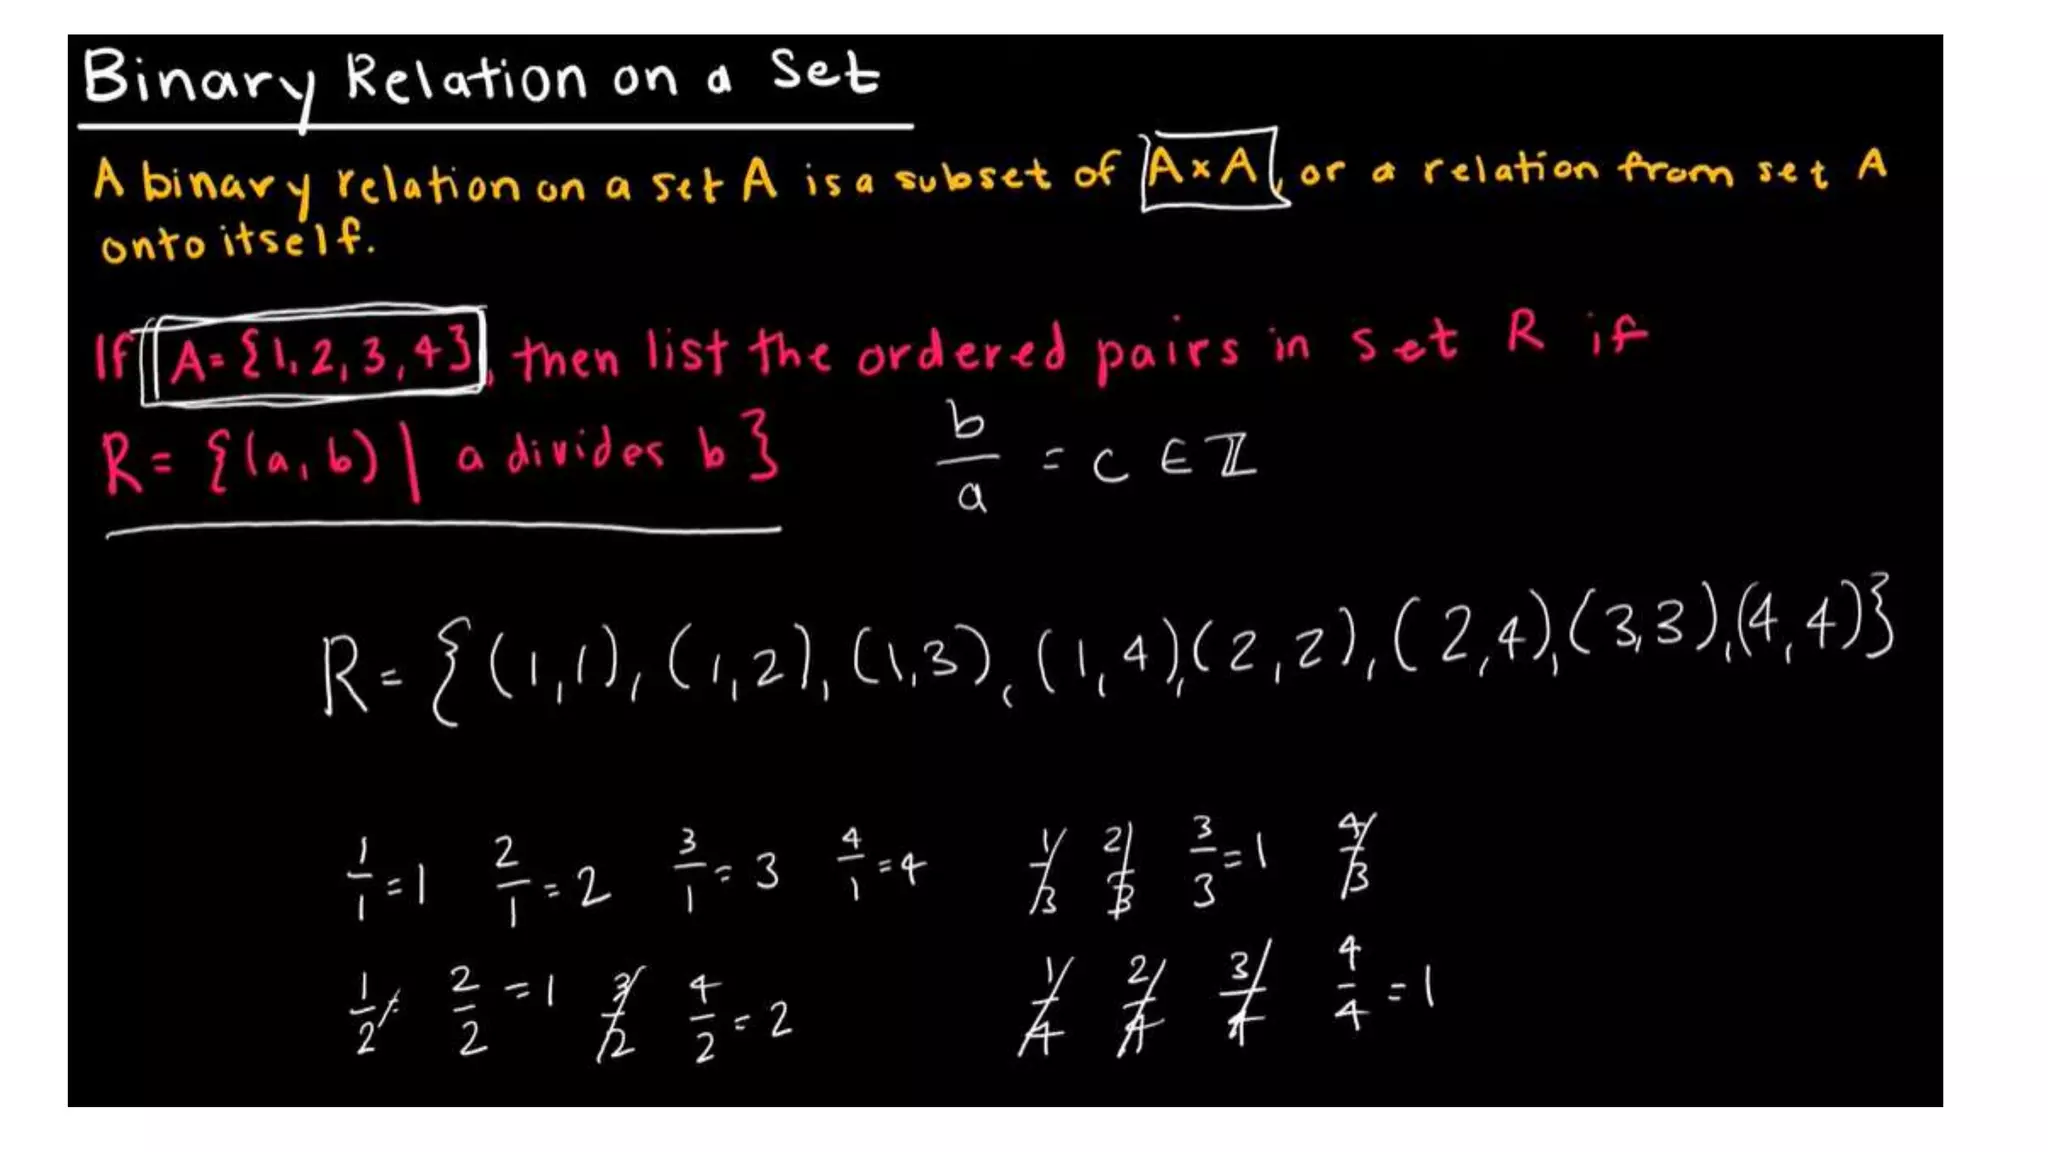 Binary Relation on a Set
A binary relation on a set A is a subset of A×A, or a relation from set A
onto itself.
If A={1,2,3,4}, then list the ordered pairs in set R if
R={(a,b)| a divides b}
b/a = c ∈ ℤ
R={(1,1),(1,2),(1,3),(1,4),(2,2),(2,4),(3,3),(4,4)}
1/1=1 2/1=2 3/1=3 4/1=4 1/3 2/3 3/3=1 4/3
1/2 2/2=1 3/2 4/2=2 1/4 2/4 3/4 4/4=1